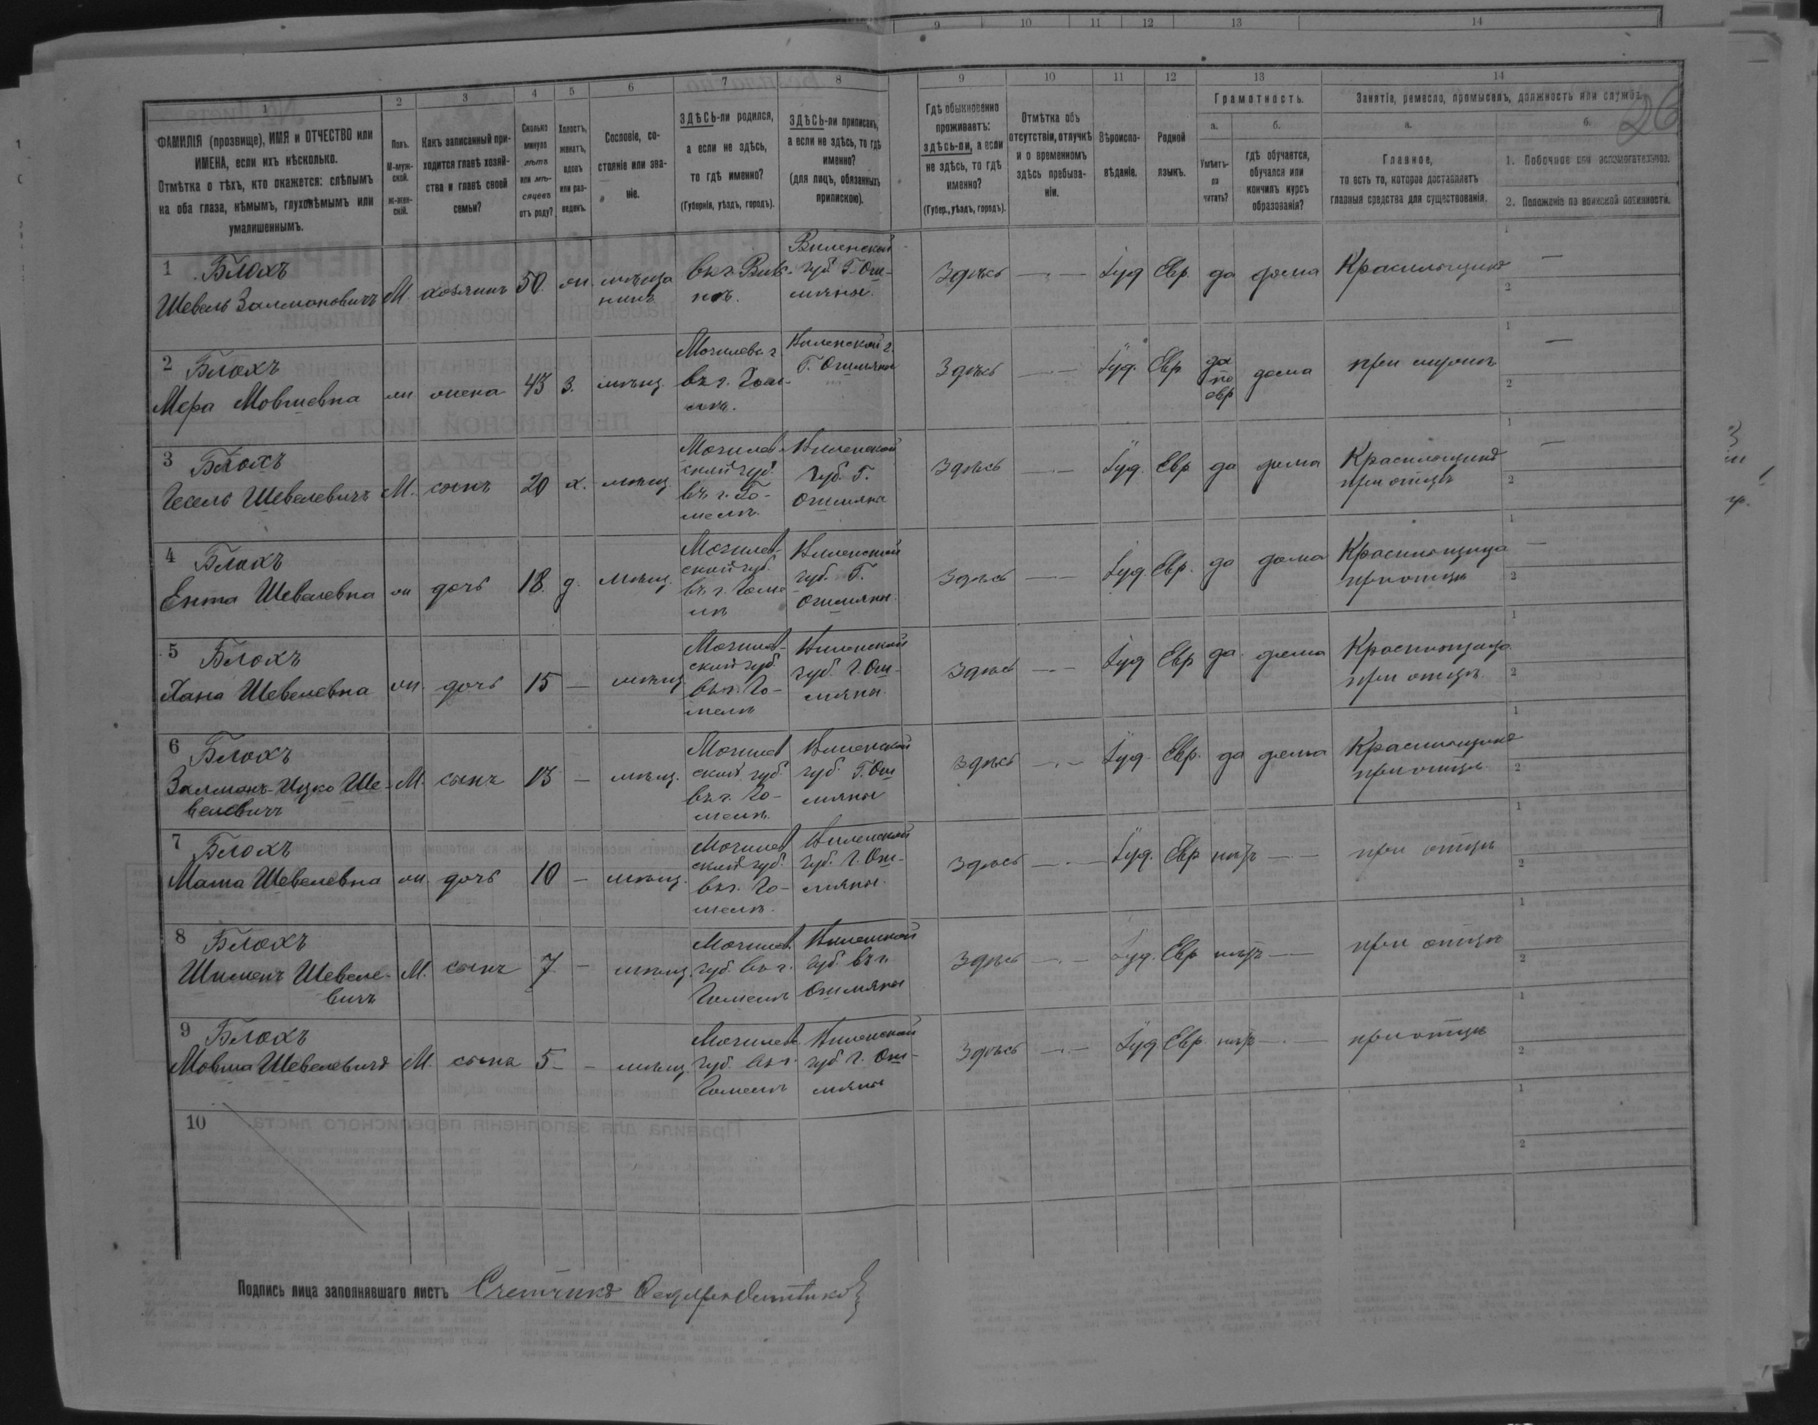 9 10 11 12 13 14
26
1 2 3 4 5 6 7 8 9 10 11 12 13 14
ФАМИЛІЯ (прозвище), ИМЯ и ОТЧЕСТВО или
ИМЕНА, если ихъ нѣсколько.
Отмѣтка о тѣхъ, кто окажется: слѣпымъ
на оба глаза, нѣмымъ, глухонѣмымъ или
умалишеннымъ.
Полъ.
М-муж-
ской.
Ж-жен-
скій.
Какъ записанный при-
ходится главѣ хозяй-
ства и главѣ своей
семьи?
Сколько
минуло
лѣтъ
или мѣ-
сяцевъ
отъ роду?
Холостъ,
женатъ,
вдовъ
или раз-
веденъ.
Сословіе, со-
стояніе или зва-
ніе.
ЗДѢСЬ-ли родился,
а если не здѣсь,
то гдѣ именно?
(Губернія, уѣздъ, городъ).
ЗДѢСЬ-ли приписанъ,
а если не здѣсь, то гдѣ
именно?
(для лицъ, обязанныхъ
припискою).
Гдѣ обыкновенно
проживаетъ:
здѣсь-ли, а если
не здѣсь, то гдѣ
именно?
(Губер., уѣздъ, городъ).
Отмѣтка объ
отсутствіи, отлучкѣ
и о временномъ
здѣсь пребыва-
ніи.
Вѣроиспо-
вѣданіе.
Родной
языкъ.
Грамотность.
а.
Умѣетъ-
ли
читать?
б.
гдѣ обучается,
обучался или
кончилъ курсъ
образованія?
Занятіе, ремесло, промыселъ, должность или служба.
а.
Главное,
то есть то, которое доставляетъ
главныя средства для существованія.
б.
1. Побочное или вспомогательное.
2. Положеніе по воинской повинности.
1 Блохъ
Шевель Залмановичъ М. хозяинъ 50 ж. мѣща
нинъ
Виленской
губ. Г. Ош-
мяны.
Здѣсь — Іуд Евр да дома Красильщикъ —
2 Блохъ
Мера Мовшевна ж жена 43 З. мѣщ.
Могилев. г.
въ г. Гом-
лѣ.
Виленской г.
Г. Ошмяны
Здѣсь — Іуд. Евр да
по
евр дома при мужѣ —
3 Блохъ
Гесель Шевелевичъ М. сынъ 20 х. мѣщ
Могилев
ской губ.
въ г. Го-
мелѣ.
Виленской
губ. Г.
Ошмяна
Здѣсь — Іуд Евр да дома Красильщикъ
при отцѣ —
4 Блохъ
Ента Шевелевна ж дочь 18. д. мѣщ.
Могилев-
ской губ.
въ г. Гоме
лѣ
Виленской
губ. Г.
Ошмяны.
Здѣсь — Іуд. Евр. да дома Красильщица
при отцѣ —
5 Блохъ
Хана Шевелевна ж. дочь 15 — мѣщ
Могилев-
ской губ.
въ г. Го-
мелѣ
Виленской
губ. Г. Ош-
мяны
Здѣсь — Іуд Евр да дома Красильщица
при отцѣ.
6 Блохъ
Залманъ-Ицко Ше-
велевичъ М. сынъ 13 — мѣщ.
Могилев
ской губ
въ г. Го-
мелѣ.
Виленской
губ. Г. Ош
мяны
Здѣсь — Іуд Евр. да дома Красильщикъ
при отцѣ
7 Блохъ
Маша Шевелевна ж. дочь 10 — мѣщ.
Могилев
ской губ.
въ г. Го-
мелѣ.
Виленской
губ. Г. Ош-
мяны.
Здѣсь — Іуд. Евр нѣтъ — при отцѣ
8 Блохъ
Шименъ Шевеле-
вичъ М. сынъ 7 — мѣщ.
Могилев.
губ. въ г.
Гомелѣ
Виленской
губ. въ г.
Ошмяны
Здѣсь — Іуд. Евр нѣтъ — при отцѣ
9 Блохъ
Мовша Шевелевичъ М. сынъ 5 — мѣщ.
Могилев.
губ. въ г.
Гомелѣ
Виленской
губ. Г. Ош-
мяны
Здѣсь — Іуд Евр нѣтъ — при отцѣ
10
Подпись лица заполнявшаго листъ Счетчикъ